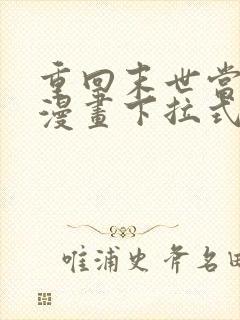 重回末世當
漫畫下拉式
唯浦史斧名田